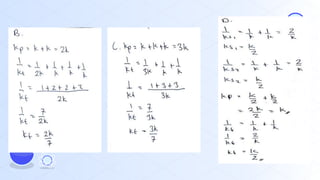 B.
Kp = k + k = 2k
1/kt = 1/2k + 1/k + 1/k + 1/k
1/kt = 1+2+2+3/2k
1/kt = 7/2k
kt = 2k/7
C. Kp = k + k + k = 3k
1/kt = 1/3k + 1/k + 1/k
1/kt = 1+3+3/3k
1/kt = 7/3k
kt = 3k/7
D.
1/ks1 = 1/k + 1/k = 2/k
ks1 = k/2
1/ks2 = 1/k + 1/k = 2/k
ks2 = k/2
kp = k/2 + k/2
= 2k/2 = k
1/kt = 1/k + 1/k
1/kt = 2/k
kt = k/2